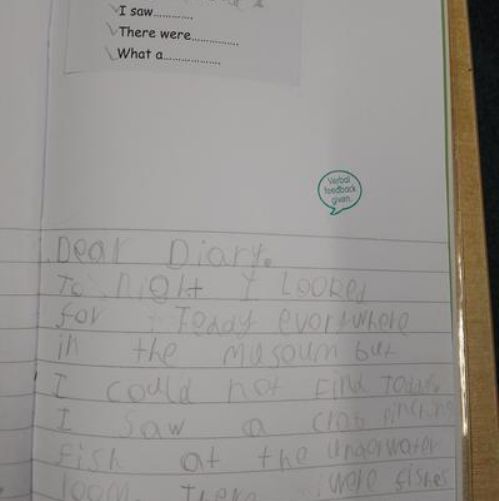 I saw............
There were...............
What a..................
Verbal
feedback
given
Dear Diary.
To night I Looked
for Teddy evorywhere
in the musoum but
I could not Find Teddy.
I saw a crab pinching
Fish at the underwater
room. There were fishes